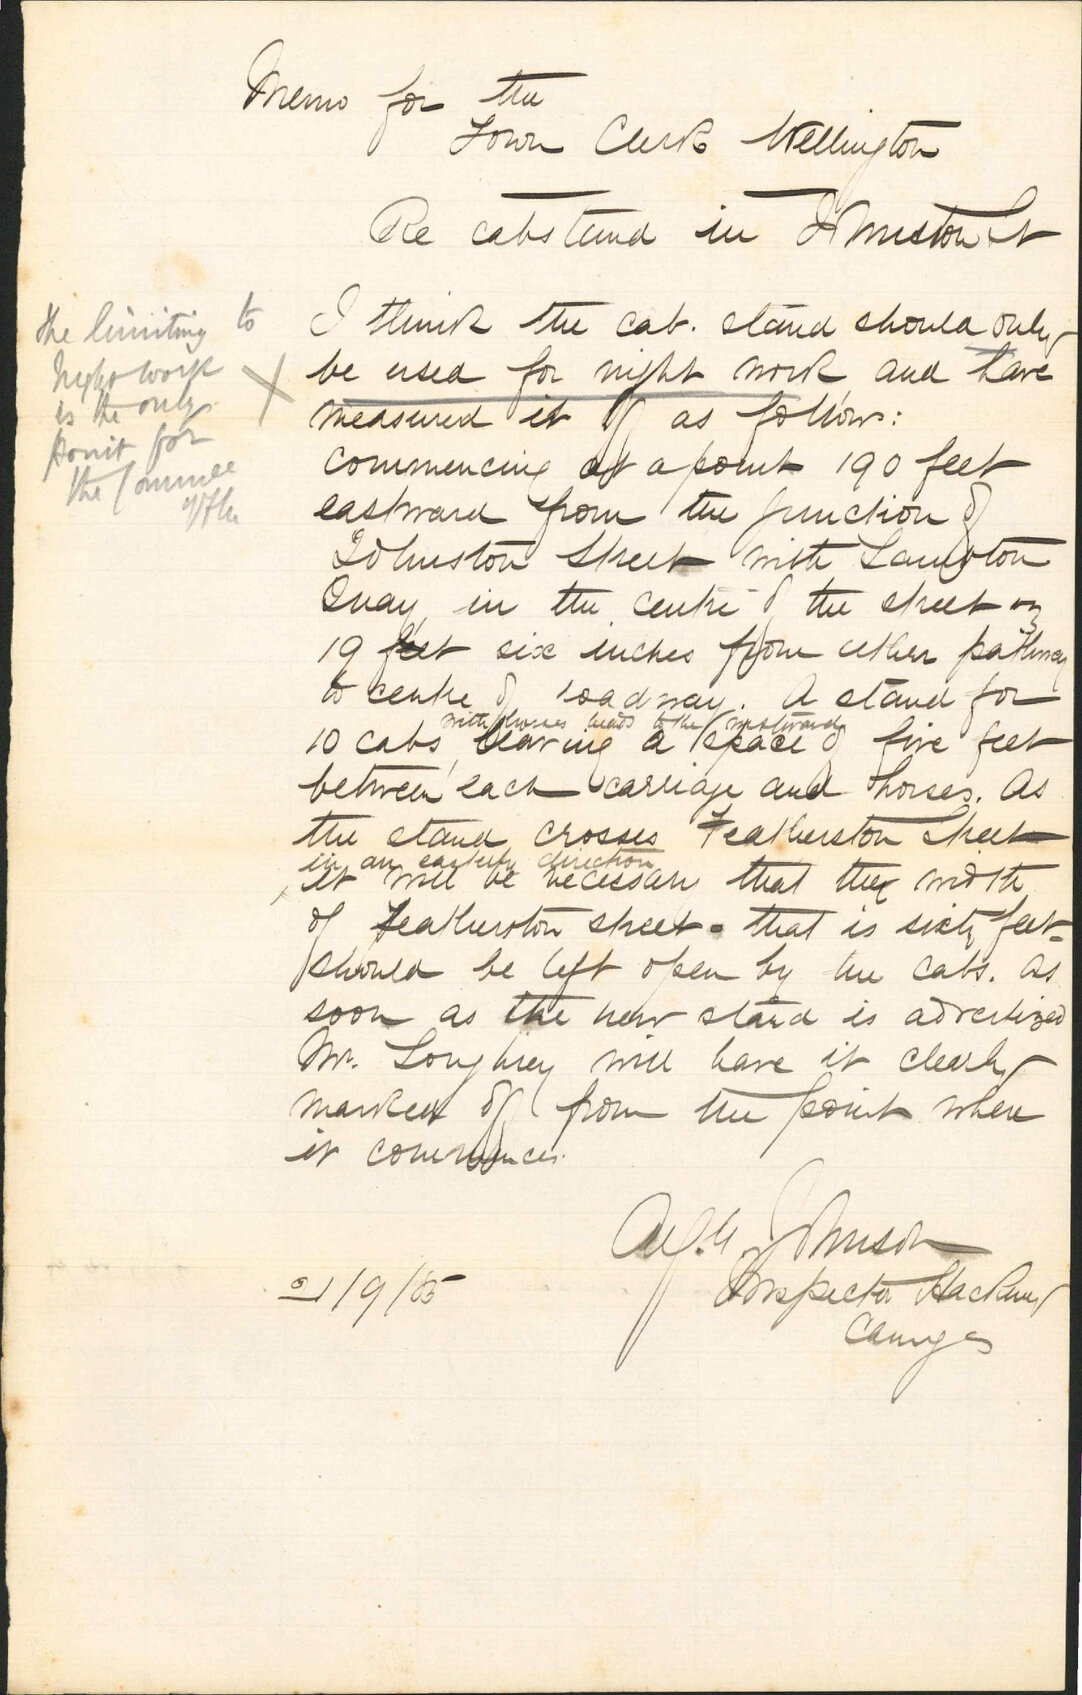 Memo for the
Town Clerk Wellington
Re cabstand in Johnston St
The limiting to
night work
is the only
point for
the Committee
I think the cab. stand should only
be used for night work and have
measured it off as follow:
commencing at a point 190 feet
eastward from the junction of
Johnston Street with Lambton
Quay in the centre of the street or
19 feet six inches from either pathway
to centre of roadway. A stand for
with horses heads to the westward
10 cabs leaving a space of five feet
between each carriage and horses. As
the stand crosses Featherston Street
in an easterly direction
it will be necessary that the width
of Featherston street - that is sixty feet -
should be left open by the cabs. As
soon as the new stand is advertized
Mr. Loughrey will have it clearly
marked off from the point where
it commences.
Johnson
Inspector Hackney
Carriages
21/9/85